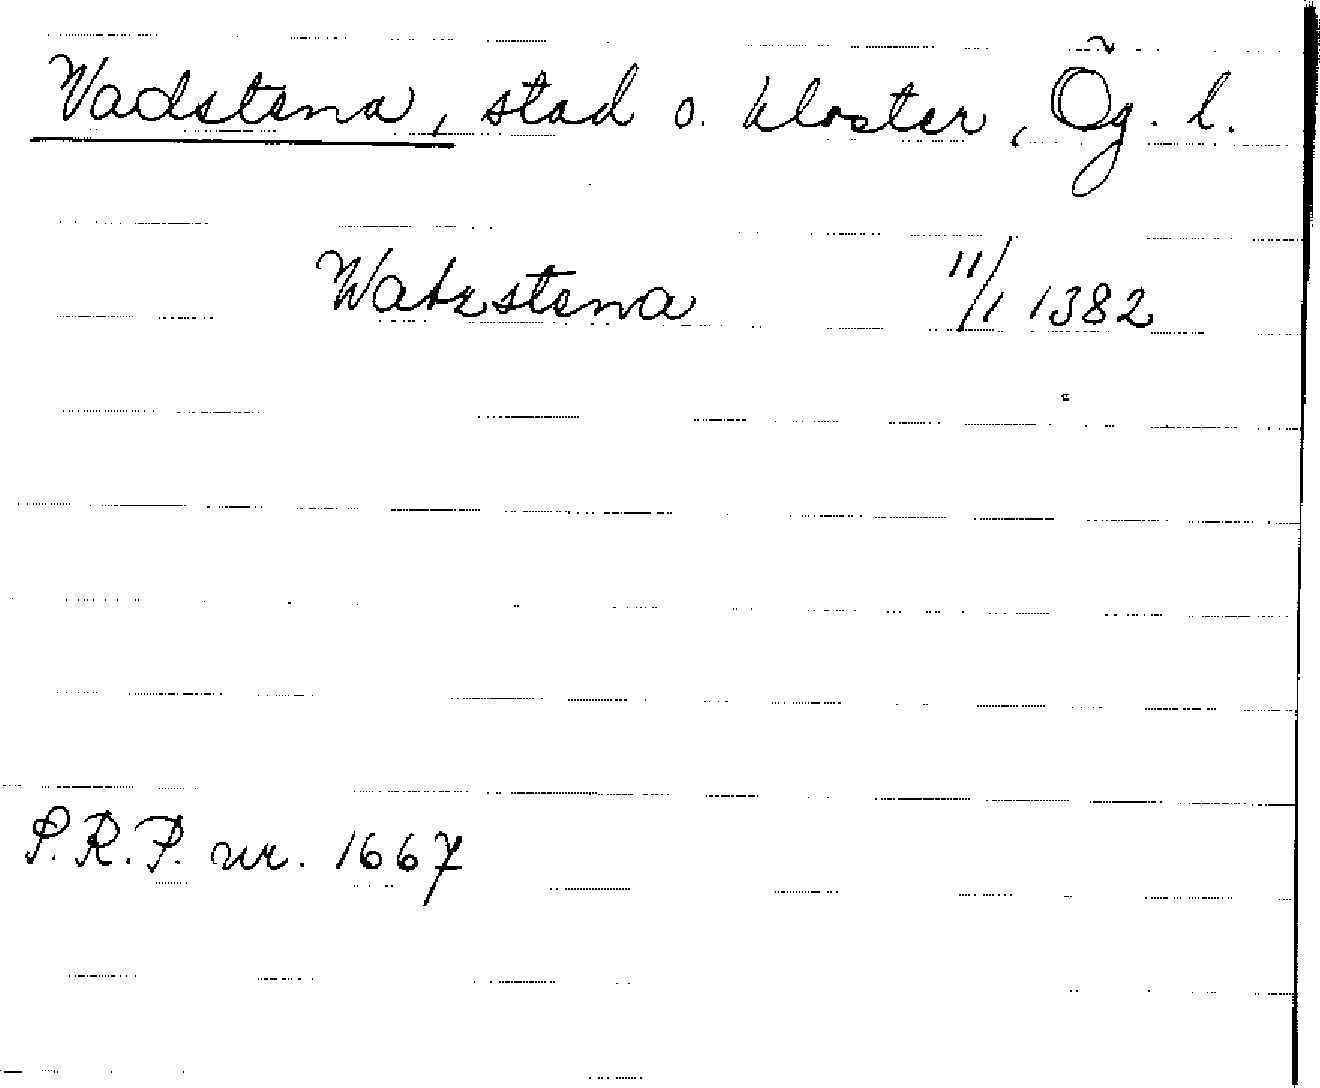 Vadstena, stad o. kloster, Ög. l.
Watzstena 11/1 1382
S.R.P. nr. 1667